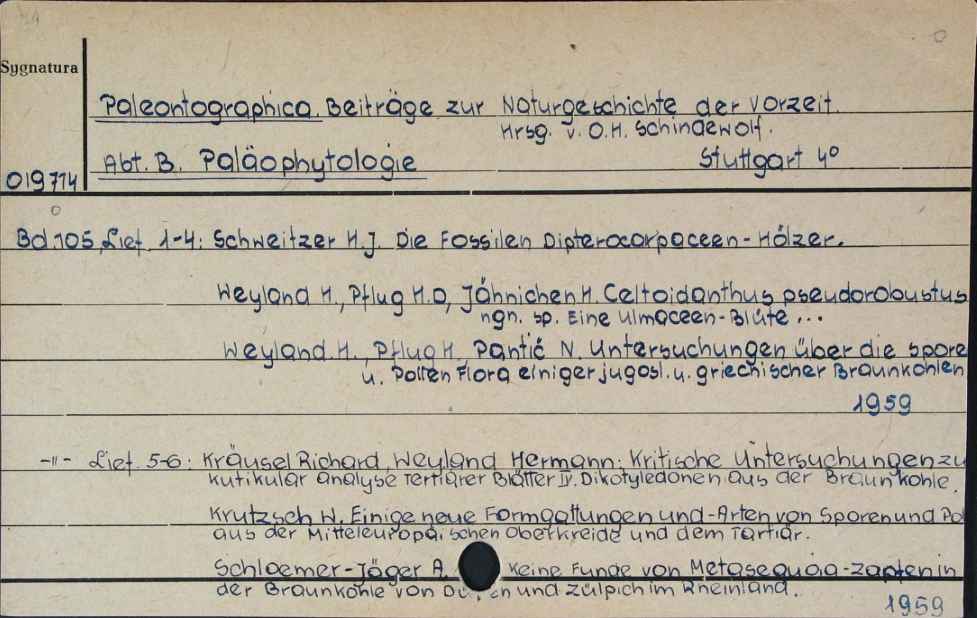 Sygnatura
Paleontographica. Beiträge zur Naturgeschichte der Vorzeit.
Hrsg. v. O.H. Schindewolf.
Abt. B. Paläophytologie Stuttgart 4°
019714
Bd. 105, Lief. 1-4: Schweitzer H.J. Die Fossilen Dipterocarpaceen-Hölzer.
Weyland H., Pflug H.D., Jähnichen H. Celtoidanthus pseudorobustus
ngn. sp. Eine Ulmaceen-Blüte ...
Weyland H., Pflug H., Pantić N. Untersuchungen über die Spore
u. Pollen Flora einiger jugosl. u. griechischer Braunkohlen
1959
-"- Lief. 5-6: Kräusel Richard, Weyland Hermann: Kritische Untersuchungen zu
kutikular analyse Tertiärer Blätter IV. Dikotyledonen aus der Braunkohle.
Krutzsch W. Einige neue Formgattungen und -Arten von Sporen und Pol
aus der Mitteleuropäischen Oberkreide und dem Tertiär.
Schloemer-Jäger A. Keine Funde von Metasequoia-Zapfen in
der Braunkohle von und Zülpich im Rheinland.
1959